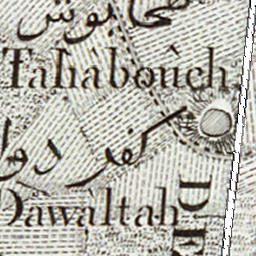 طحابوش
Tahabouch.
كفر دوا
Dawaltah
DE